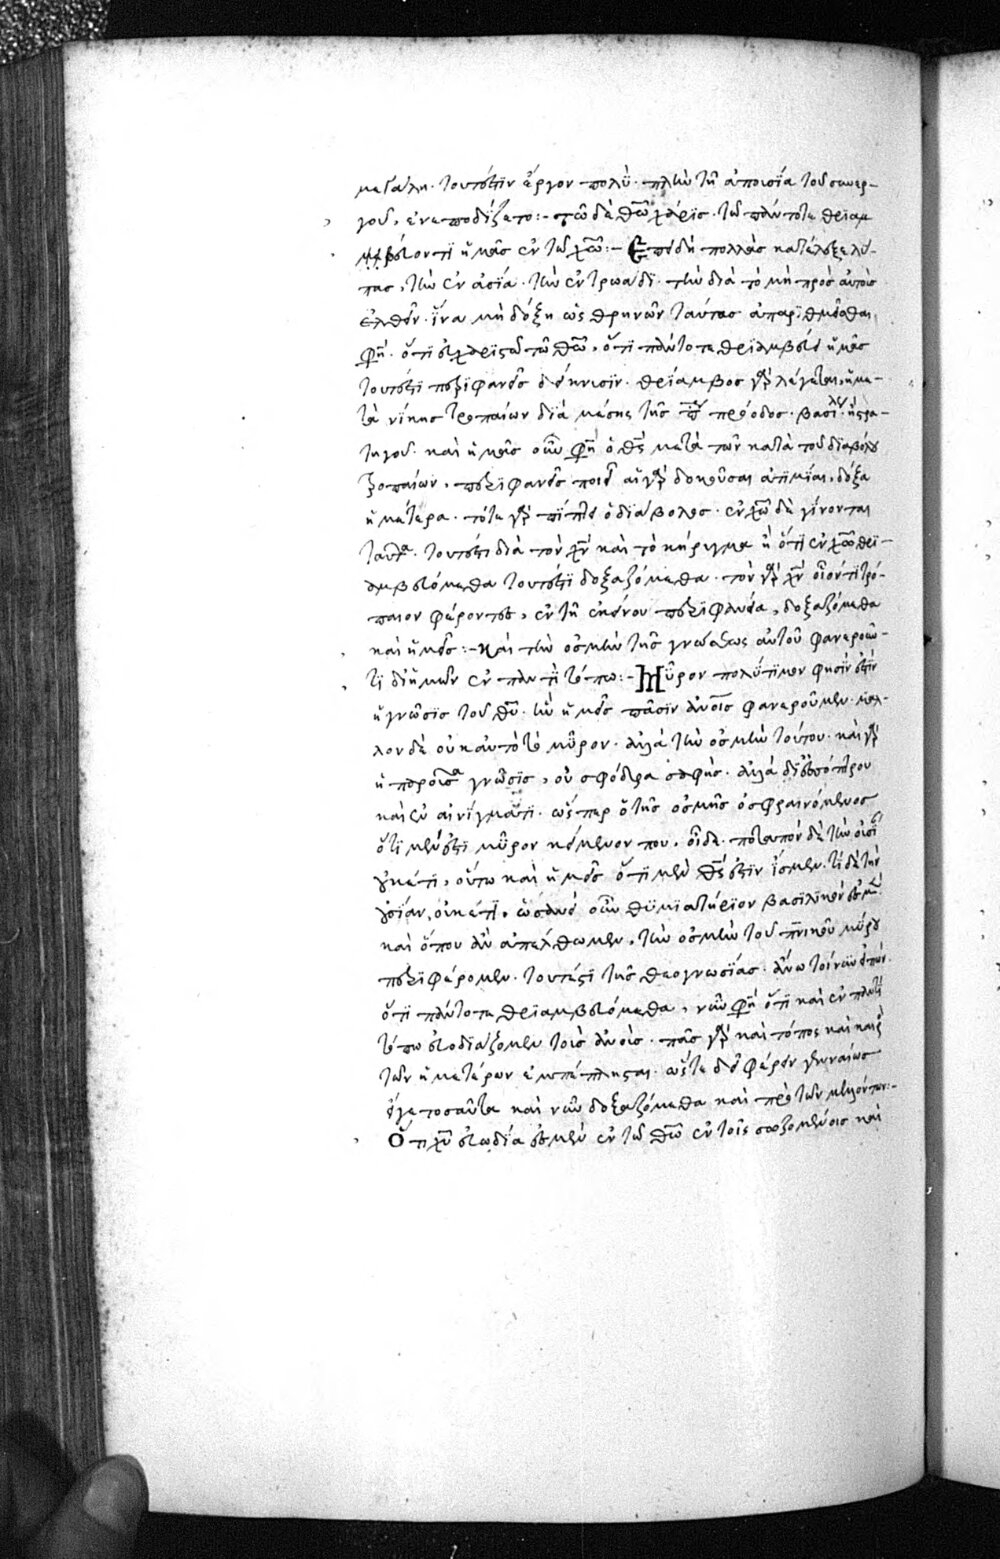 μεγάλη. τουτέστιν ἔργον πολύ. πλὴν τῇ ἀπουσία τοῦ συνερ-
γοῦ, ἐνεποδίζετο :- τῶ δὲ θῶ χάρις. τῶ πάντοτε θριαμ
βεύοντι ἡμᾶς ἐν τῶ χῶ :- Ἐπειδὴ πολλὰς κατέλεξε λύ-
πας, τὴν ἐν ἀσία. τὴν ἐν τρωάδι. τὴν διὰ τὸ μὴ πρὸς αὐτοὺς
ἐλθεῖν. ἵνα μὴ δόξη ὡς θρηνῶν ταύτας ἀπαριθμεῖσθαι
φη. ὅτι εὐχαριστῶ τῶ θῶ, ὅτι πάντοτε θριαμβεύει ἡμᾶς
τουτέστι περιφανεῖς δείκνυσιν. θρίαμβος γὰρ λέγεται, ἡ με-
τὰ νίκης τροπαίων διὰ μέσης τῆς πρόοδος. βασιλέως ἢ στρα-
τηγοῦ. καὶ ἡμᾶς οὖν φη ὁ θς μετὰ τῶν κατὰ τοῦ διαβόλου
τροπαίων, περιφανεῖς ποιεῖ αἱ γὰρ δοκοῦσαι ἀτιμίαι, δόξα
ἡμέτερα. τότε γὰρ πίπτει ὁ διάβολος. ἐν χῶ δὲ γίνονται
ταῦτα. τουτέστι διὰ τὸν χν καὶ τὸ κήρυγμα ἢ ὅτι ἐν χῶ θρι-
αμβευόμεθα τουτέστι δοξαζόμεθα. τὸν γὰρ χν οἱονεί τι τρό-
παιον φέροντες, ἐν τῇ ἐκείνου περιφανεία, δοξαζόμεθα
καὶ ἡμεῖς :- Καὶ τὴν ὀσμὴν τῆς γνώσεως αὐτοῦ φανεροῦν-
τι δι ἡμῶν ἐν παντὶ τόπω :- Μῦρον πολύτιμον φησίν ἐστιν
ἡ γνῶσις τοῦ θυ. ἣν ἡμεῖς πᾶσιν ἀνοις φανεροῦμεν. μᾶλ-
λον δὲ οὐκ αὐτὸ τὸ μῦρον. ἀλλὰ τὴν ὀσμὴν τούτου. καὶ γὰρ
ἡ παροῦσα γνῶσις, οὐ σφόδρα σαφής. ἀλλὰ δι ἐσόπτρου
καὶ ἐν αἰνίγματι. ὥσπερ ὁ τῆς ὀσμῆς ὀσφραινόμενος
ὅτι μέν ἐστι μῦρον κείμενον που, οἶδε. ποταπὸν δὲ τὴν οὐσίαν
οὐκέτι, οὕτω καὶ ἡμεῖς ὅτι μὲν θς ἐστιν ἴσμεν. τί δὲ τὴν
οὐσίαν, οὐκέτι. ὡσανεὶ οὖν θυμιατήριον βασιλικόν ἐσμεν
καὶ ὅπου ἂν ἀπέλθωμεν, τὴν ὀσμὴν τοῦ πνικοῦ μύρου
περιφέρομεν. τουτέστι τῆς θεογνωσίας. ἄνω τοίνυν εἰπὼν
ὅτι πάντοτε θριαμβευόμεθα, νῦν φη ὅτι καὶ ἐν παντὶ
τόπω εὐωδιάζομεν τοῖς ἀνοις. πᾶς γὰρ καὶ τόπος καὶ καιρὸς
τῶν ἡμετέρων ἐμπέπλησται. ὥστε δεῖ φέρειν γενναίως
εἴγε τοσαῦτα καὶ νῦν δοξαζόμεθα καὶ πρὸ τῶν μελλόντων :-
Ὅτι χυ εὐωδία ἐσμὲν ἐν τῶ θῶ ἐν τοῖς σωζομένοις καὶ